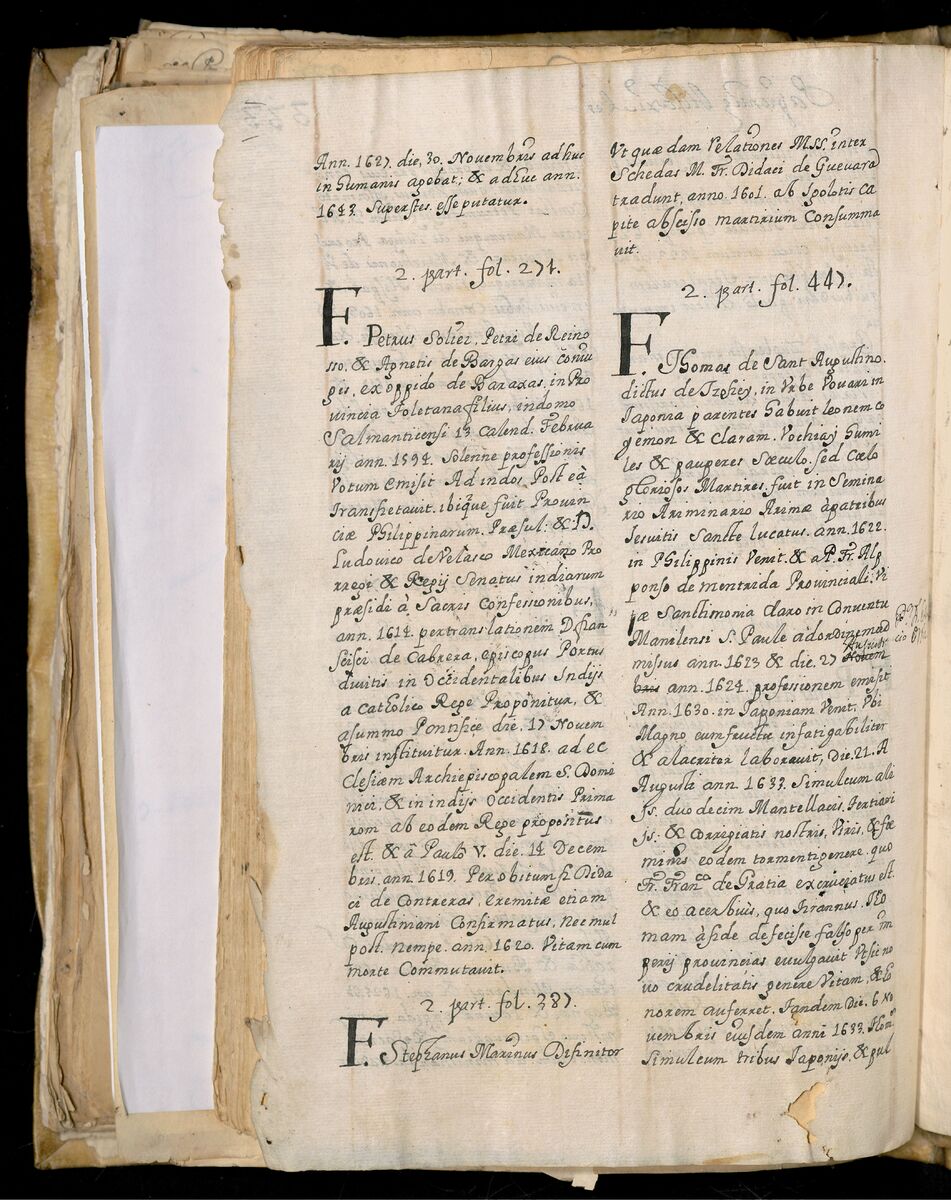 Ann. 1627. die, 30. Novembris adhuc
in humanis agebat; & adhuc ann.
1643. Superstes. esse putatur.
2. part. fol. 271.
F. Petrus Solier, Petri de Reino
sso, & Agnetis de Bargas eius coniu
gis, ex oppido de Baraxas, in Pro
vincia Toletana filius, in domo
Salmanticensi 13 Calend. Februa
rij ann. 1594. Solenne professionis
Votum emisit Ad indos Post eà
Transfretavit. ibique fuit Provin
ciæ Philippinarum. Præsul: & D.
Ludovico de Velasco Mexicano Pro
rregi & Regij Senatus indiarum
præsidi à Sacris Confessionibus,
ann. 1614. per translationem D. fran
scisci de Cabrera, episcopus Portus
divitis in Occidentalibus Indijs
a catholico Rege Proponitur, &
a summo Pontifice die. 17 Novem
bris instituitur. Ann. 1618. ad ec
clesiæm Archiepiscopalem S. Domi
nici, & in indijs Occidentis Prima
rom ab eodem Rege propositus
est. & à Paulo V. die. 14 Decem
bris. ann. 1619. Per obitum fr. Dida
ci de Contreras, eremitæ etiam
Augustiniani Confirmatus, nec mul
post. nempe. ann. 1620. Vitam cum
morte Commutavit.
2. part. fol. 387.
F. Stephanus Marinus Difinitor
Vt quædam relationes MSS. inter
Schedas M. Fr. Didaci de Guevara
tradunt, anno 1601. ab Spolotis ca
pite abscisso martirium Consumma
uit.
2. part. fol. 447.
F. Thomas de Sant Augustino.
dictus de in Vrbe Vovari in
Iaponia parentes habuit leonem co
gemon & claram. Vochiay humi
les & pauperes Sæculo. sed Cælo
gloriosos Martires. fuit in Semina
rio Ariminario Arimæ à patribus
Iesuitis Sancte lucatus. ann. 1622.
in Philippinis Venit. & a P. Fr. Alp
ponso de mentrida Provinciali. Vi
tæ Sanctismonia claro in Conventu
Manilensi S. Paule ad ordinem ad
missus ann. 1623 & die. 27 Novem
bris ann. 1624. professionem emisit
Ann. 1630. in Iaponiam Venit, Vbi
Magno cum fructu infatigabiliter
& alacriter laboravit, Die. 21. A
Augusti ann. 1633. Simul cum ali
js. duodecim Mantellatis, Tertiari
js. & Corrigiatis nostris, Viris, & fæ
minis eodem tormenti genere. quo
Fr. Franco. de Gratia excruciatus est.
& eo acerbius, quo Tirannus. Tho
mam à fide defecisse falso per im
perij provincias evulgavit Vt sit no
vo crudelitatis genere Vitam, & ho
norem auferret. Tandem Die. 6 No
vembris eiusdem anni 1633. Thom
Simul cum tribus Iaponijs. & pul